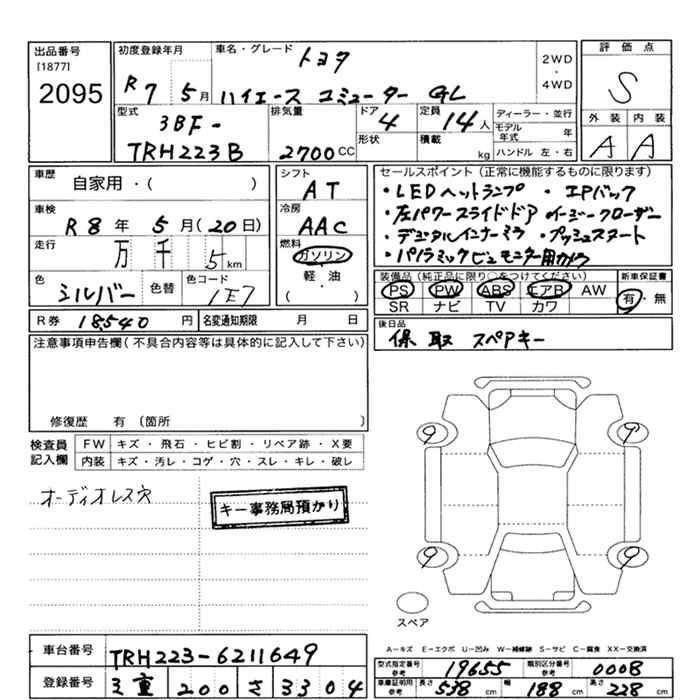 出品番号
[1877]
2095
初度登録年月
R7 5月
車名・グレード
トヨタ
ハイエース コミューター GL
2WD
・
4WD
評価点
S
外装 内装
A A
型式
3BF-
TRH223B
排気量
2700CC
ドア
4
形状
定員
14人
積載
kg
ディーラー・並行
モデル年式 年
ハンドル 左・右
車歴
自家用・( )
車検
R8年 5月(20日)
走行
万 千 5km
色
シルバー
色替
色コード
1E7
シフト
AT
冷房
AAC
燃料
ガソリン
軽・油
( ・ )
セールスポイント(正常に機能するものに限ります)
・LEDヘットランプ ・エアバック
・左パワースライドドア イージークローザー
・デジタルインナーミラ ・プッシュスタート
・パノラミックビュモニター用カメラ
装備品(純正品に限り○をつけてください)
PS PW ABS エアB AW
SR ナビ TV カワ
新車保証書
有・無
後日品
保 取 スペアキー
R券 18540円
名変通知期限 月 日
注意事項申告欄(不具合内容等は具体的に記入して下さい)
修復歴 有(箇所 )
検査員記入欄
FW キズ・飛石・ヒビ割・リペア跡・X要
内装 キズ・汚レ・コゲ・穴・スレ・キレ・破レ
オーディオレス穴
キー事務局預かり
9 9
9 9
スペア
A-キズ E-エクボ U-凹み W-補修跡 S-サビ C-腐食 XX-交換済
車台番号 TRH223-6211649
登録番号 三重 200 さ 3304
型式指定番号参考 19655
類別区分番号参考 0008
車庫証明用参考 長さ 538cm 幅 188cm 高さ 228cm